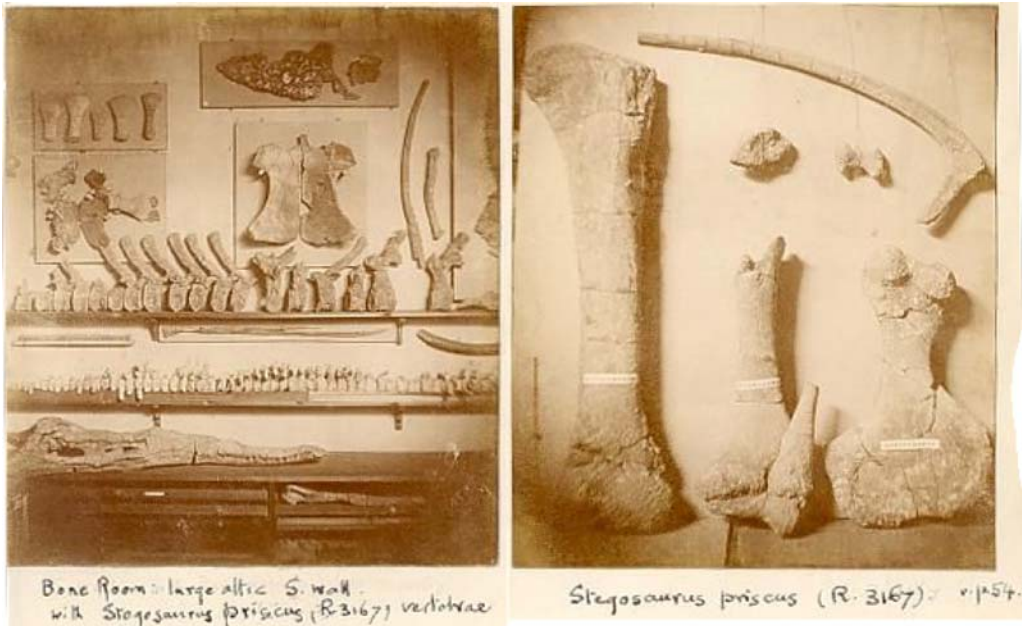 Bone Room: large attic S. wall.
with Stegosaurus priscus (R.3167) vertebrae
Stegosaurus priscus (R. 3167). v. p.54.